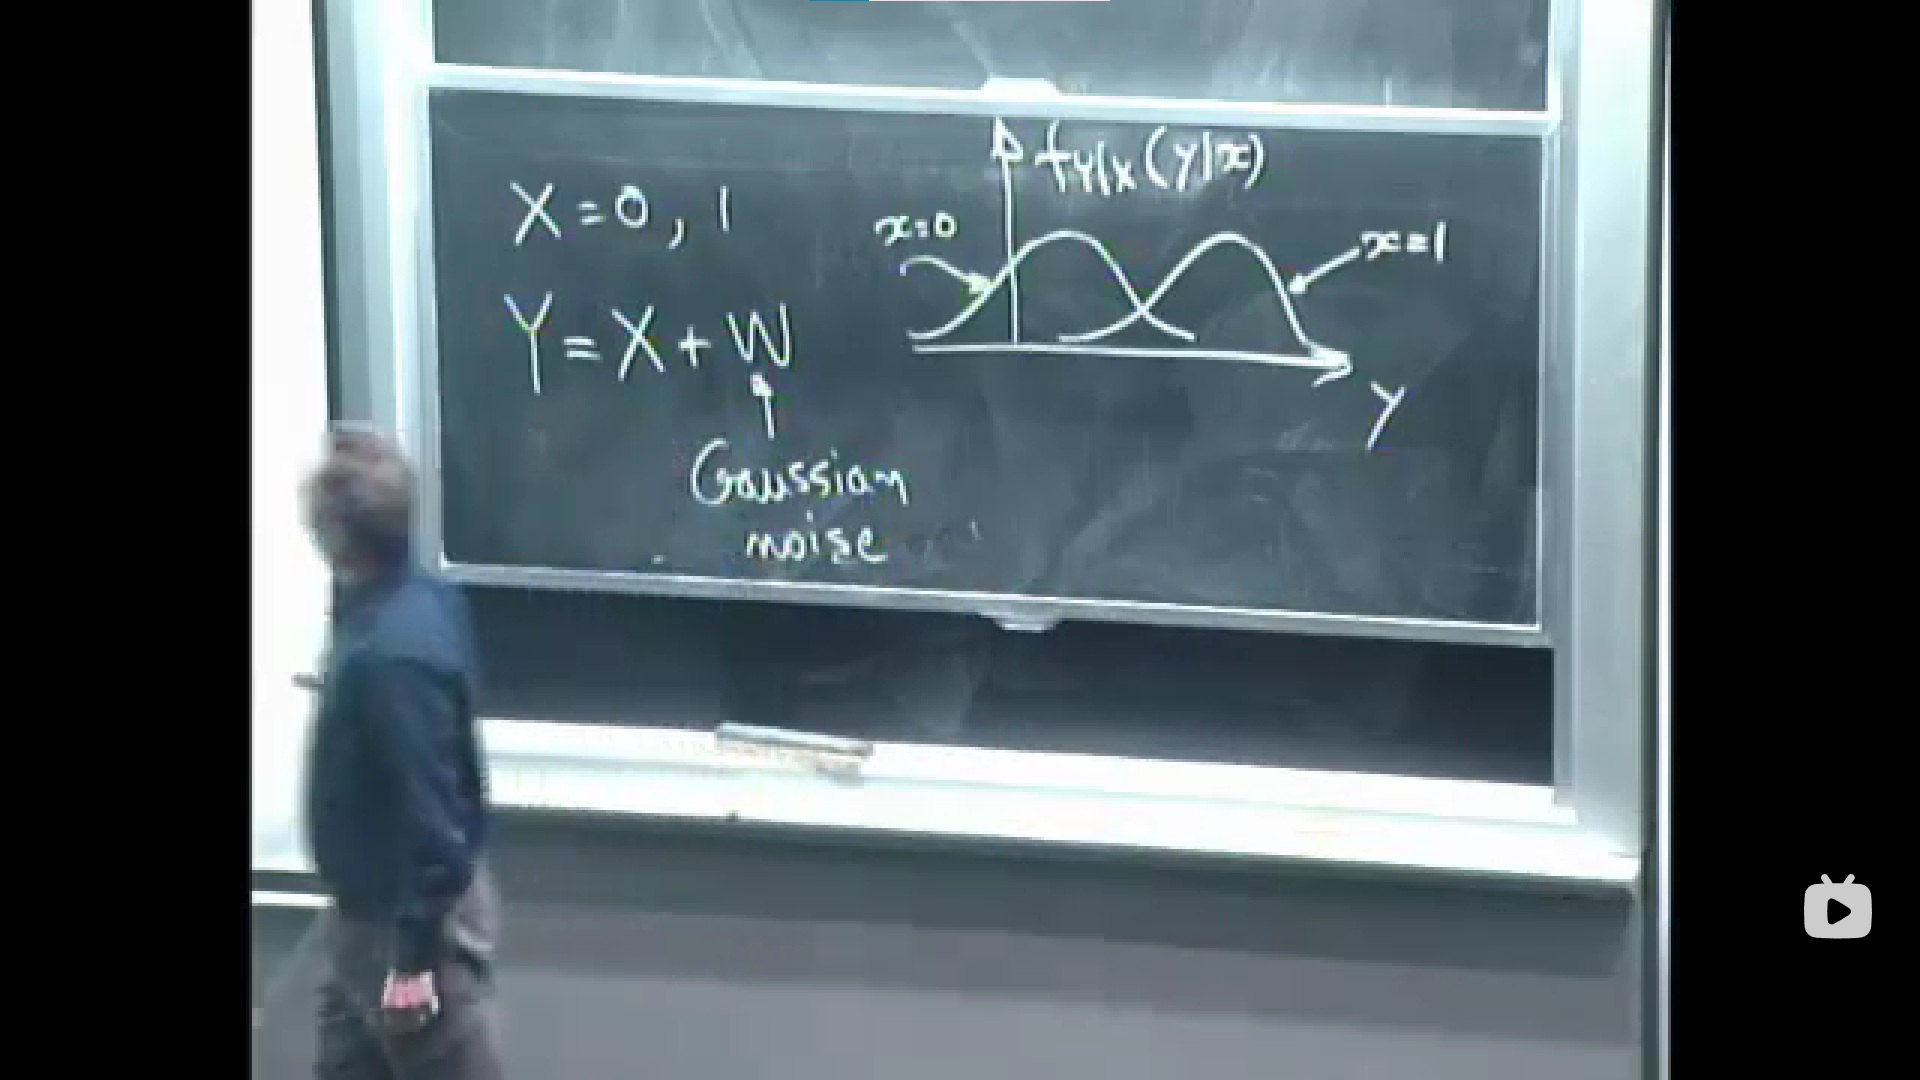 X = 0, 1
Y = X + W
Gaussian
noise
f Y|X (y|x)
x=0
x=1
y